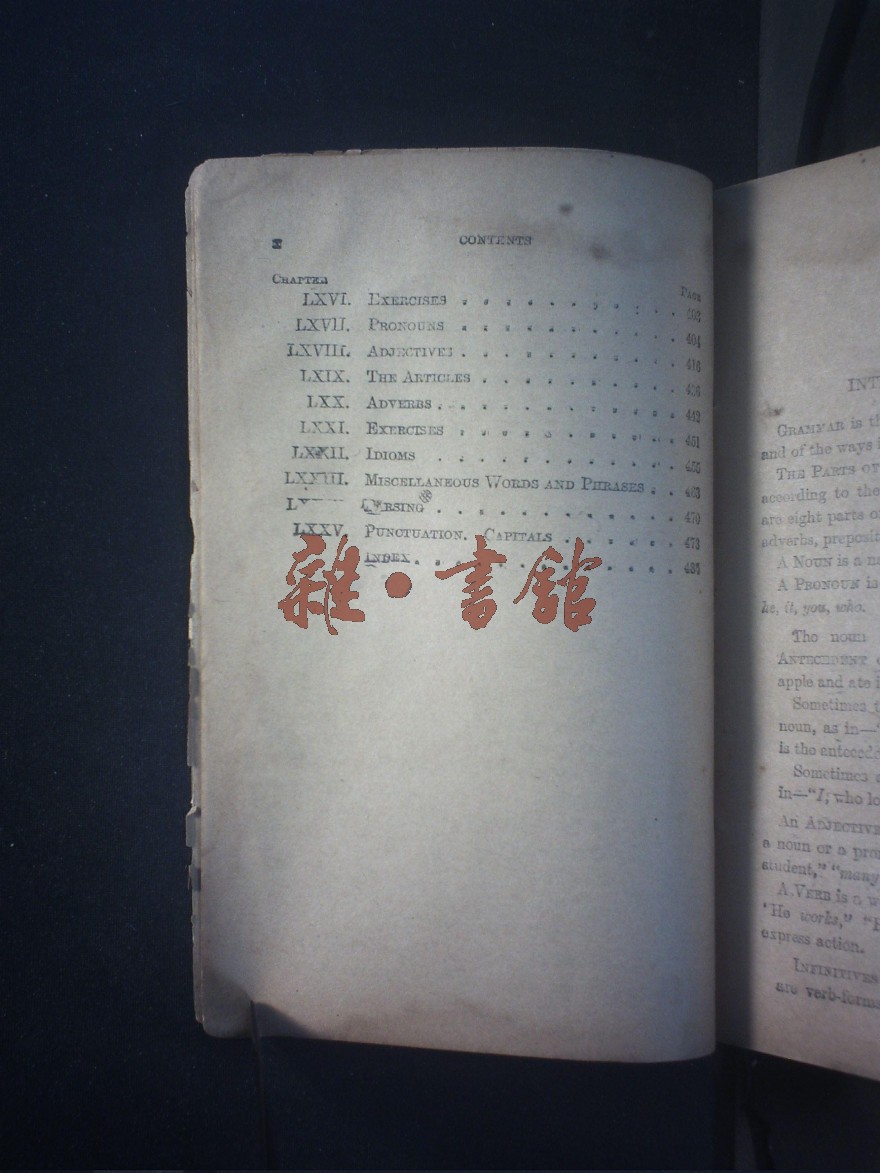 x CONTENTS
CHAPTER PAGE
LXVI. EXERCISES 403
LXVII. PRONOUNS 404
LXVIII. ADJECTIVES 416
LXIX. THE ARTICLES
LXX. ADVERBS 442
LXXI. EXERCISES 451
LXXII. IDIOMS 455
LXXIII. MISCELLANEOUS WORDS AND PHRASES 463
PARSING 470
LXXV. PUNCTUATION. CAPITALS 473
INDEX 483
雜·書館
INT
GRAMMAR is th
and of the ways i
THE PARTS OF
according to the
are eight parts o
adverbs, preposit
A NOUN is a na
A PRONOUN is
he, it, you, who.
The noun
ANTECEDENT
apple and ate i
Sometimes t
noun, as in—"
is the antecede
Sometimes
in—"I, who lo
An ADJECTIVE
a noun or a pro
student," "many
A VERB is a w
"He works," "H
express action.
INFINITIVES
are verb-forms